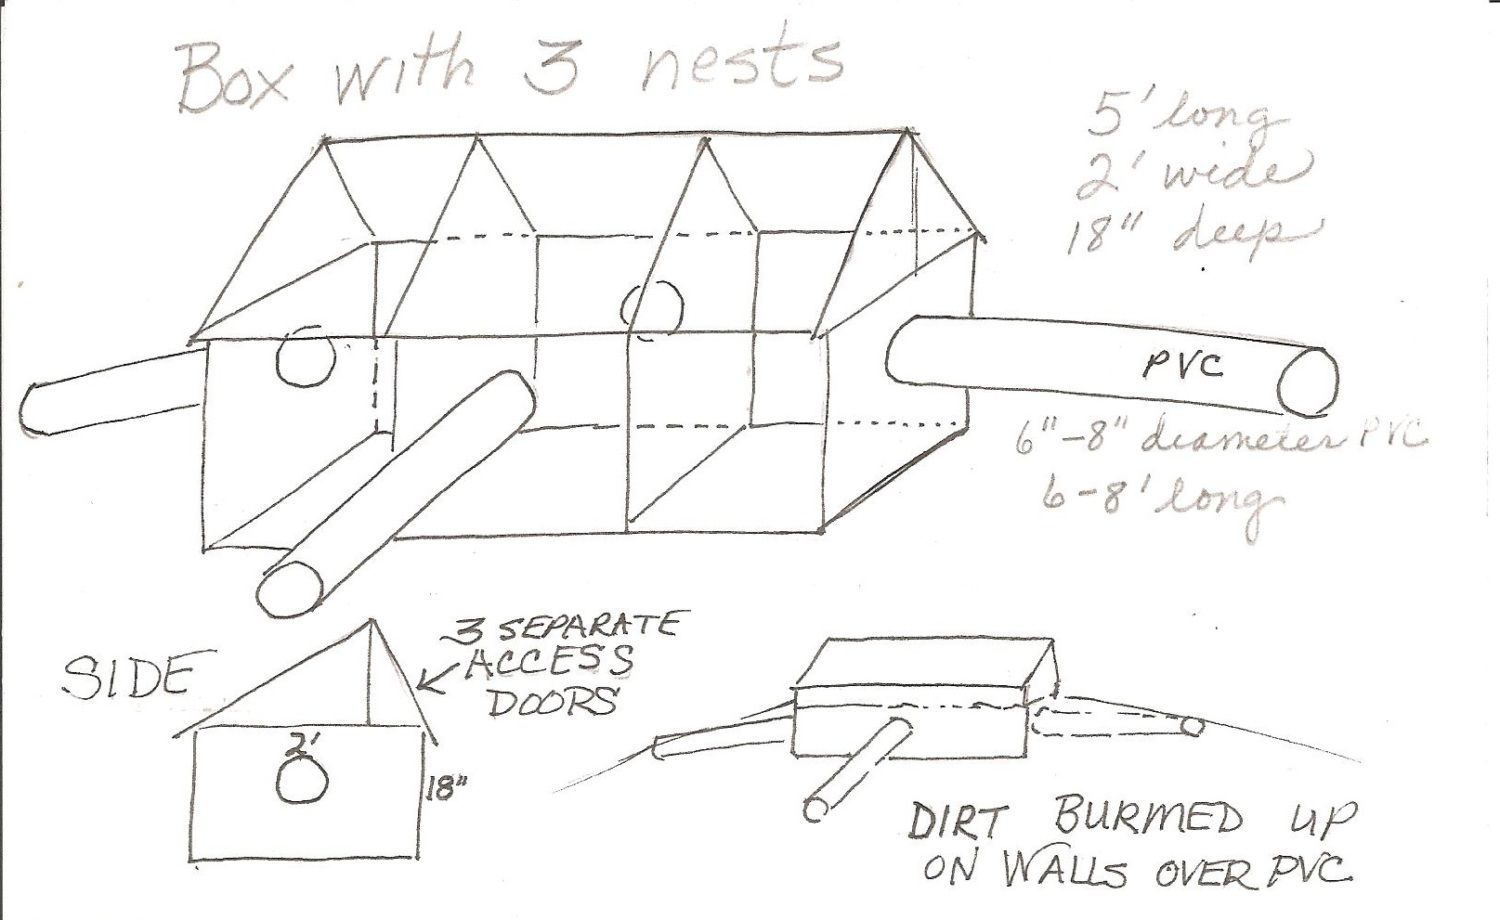 Box with 3 nests
5' long
2' wide
18" deep
PVC
6"-8" diameter PVC
6-8' long
SIDE
3 SEPARATE
ACCESS
DOORS
2'
18"
DIRT BURMED UP
ON WALLS OVER PVC